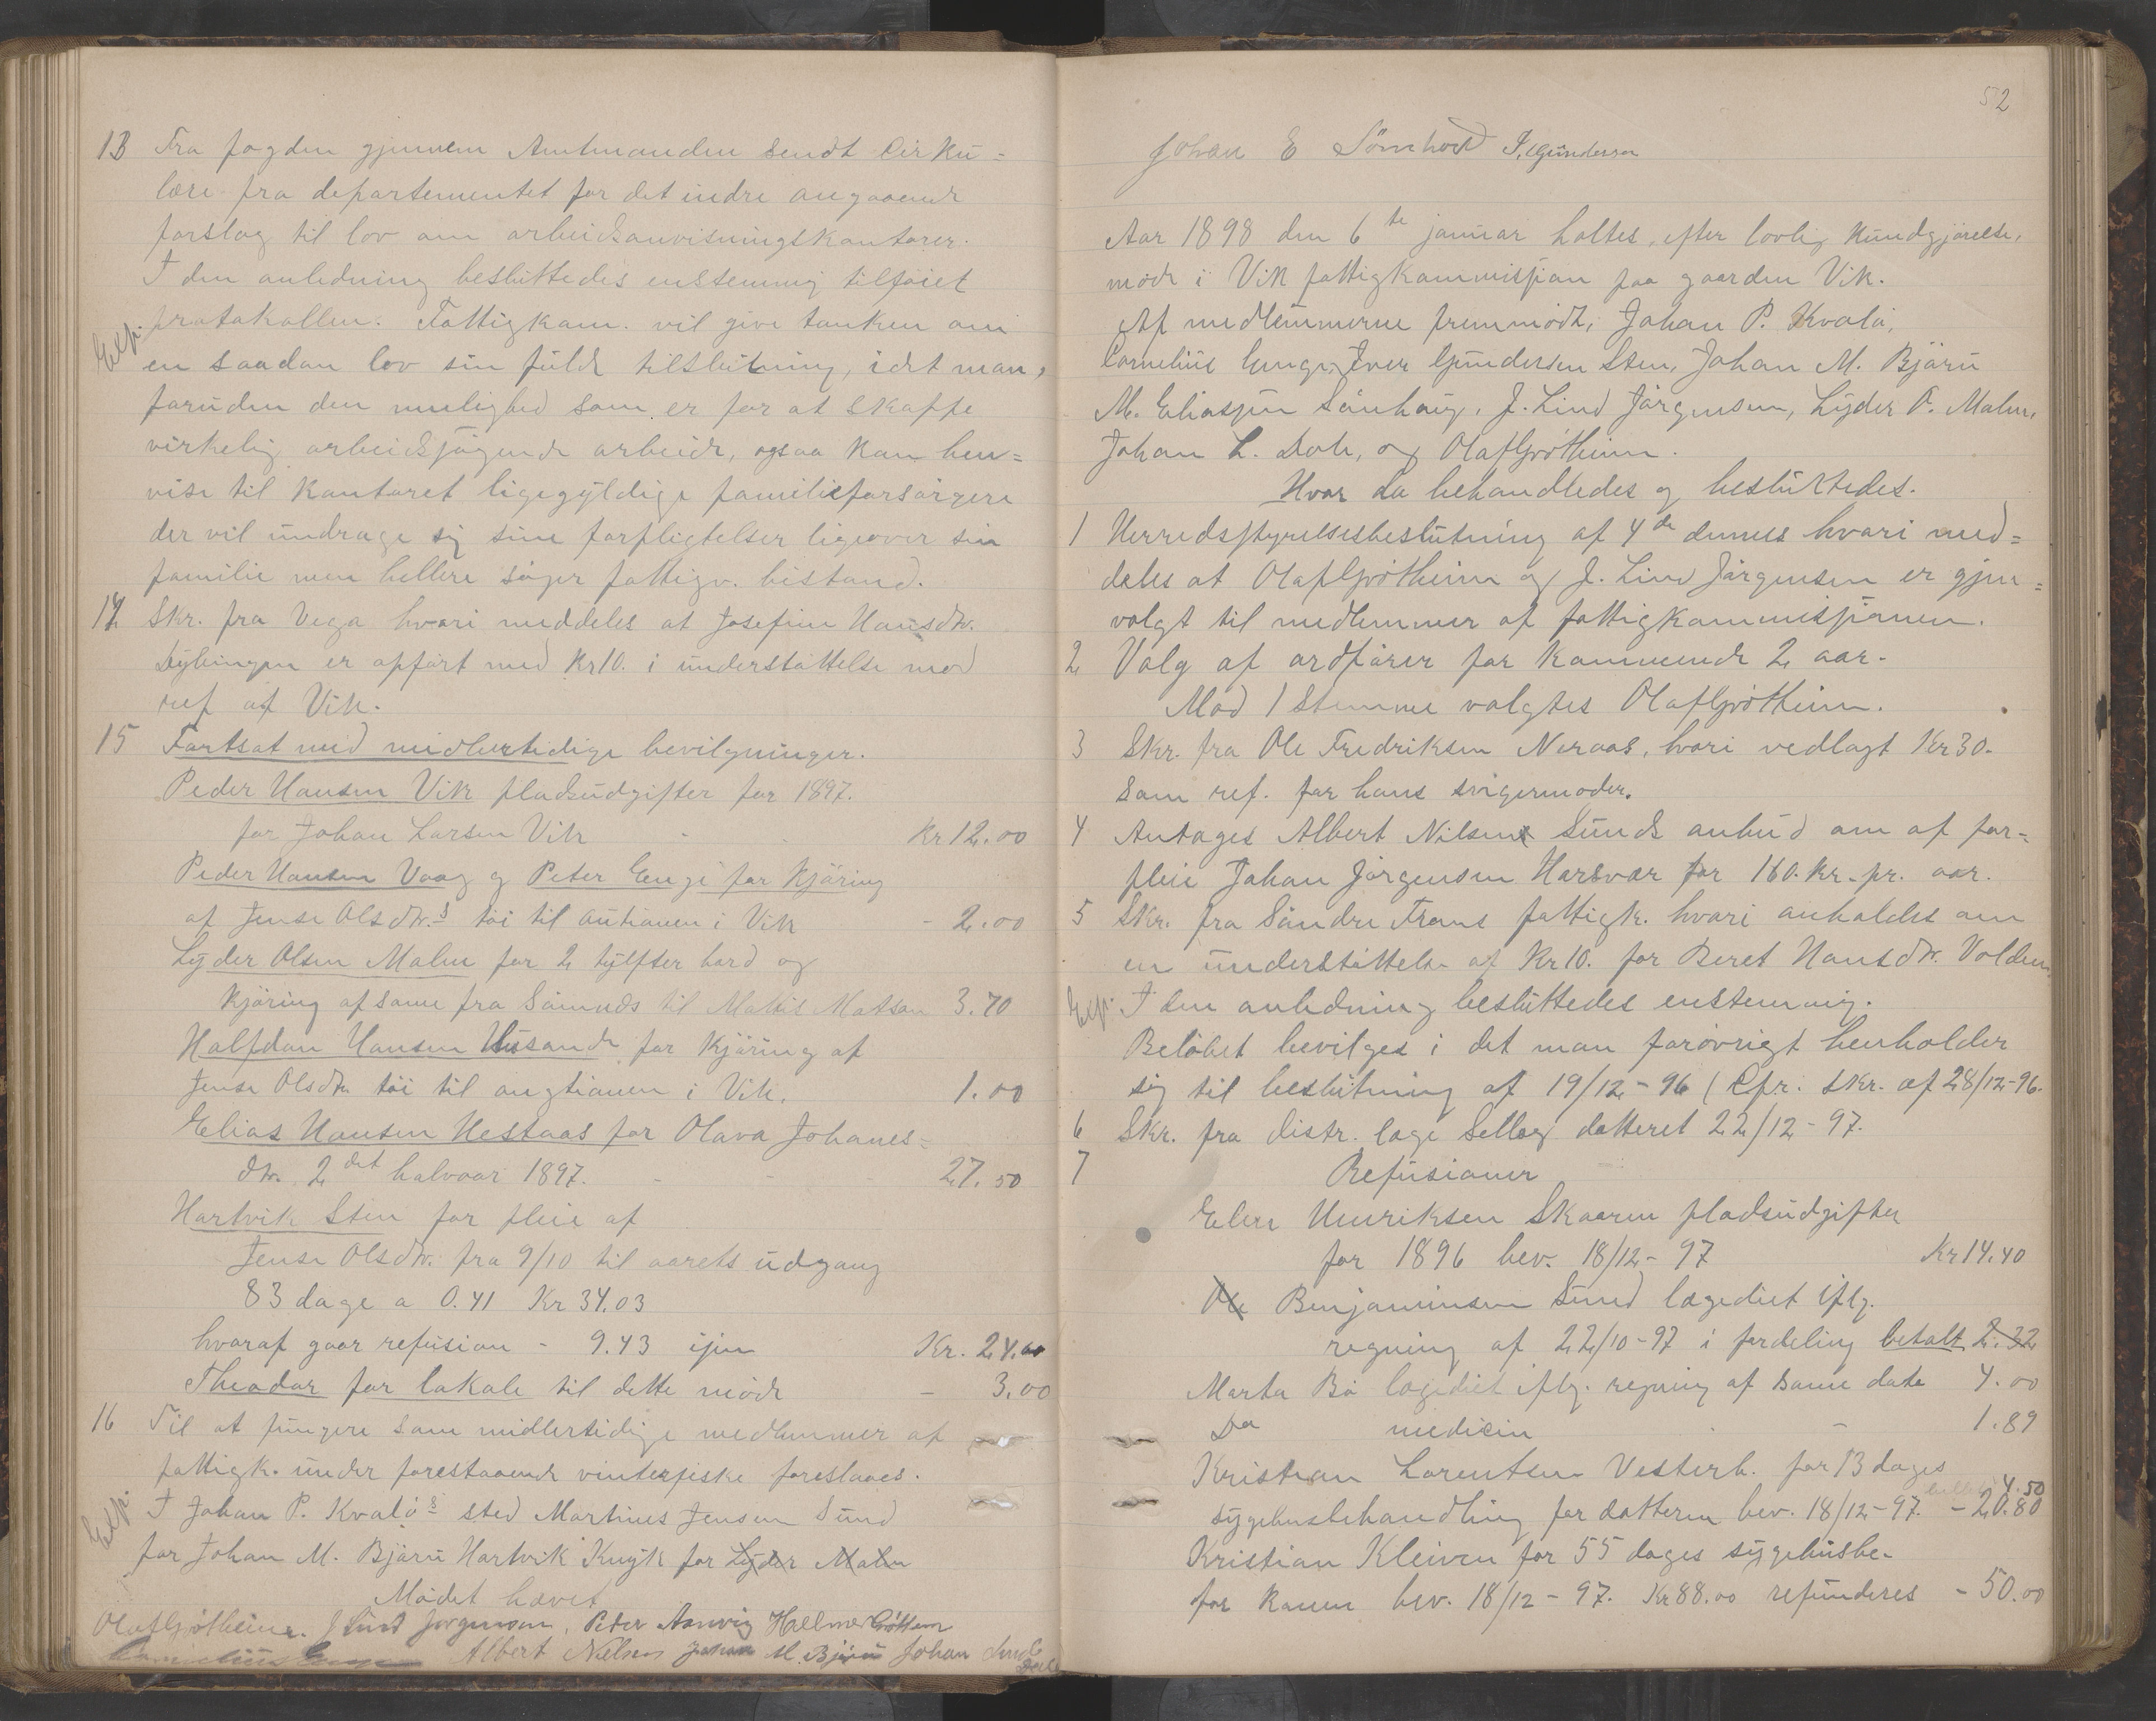 13 Fra fogden gjennem Amtmanden sendt cirku=
lære fra departementet for det indre angaaende
forslag til lov om arbeidsanvisningskontorer.
I den anledning besluttedes enstemmig tilføiet
Exp. protokollen. Fattigkom. vil give tanken om
en saadan lov sin fulde tilslutning, idet man,
foruden den mulighed som er for at skaffe
virkelig arbeidsøgende arbeide, ogsaa kan hen=
vise til kontoret ligegyldige familieforsørgere
der vil undrage sig sine forpligtelser ligeover sin
familie men hellere søger fattigv. bistand.
14 Skr. fra Vega hvori meddeles at Josefine Hansdtr.
er opført med Kr 10. i understøttelse mod
ref af Vik.
15 Fortsat med midlertidige bevilgninger.
Peder Hansen Vik pladsudgifter for 1897.
for Johan Larsen Vik - - Kr 12.00
Peder Hansen Vaag og Peter Enge for kjøring
af Jense Olsdtr.s tøi til autionen i Vik - 2.00
Lyder Olsen Malm for 2 tylfter bord og
kjøring af same fra Sømnæs til Mattis Matsen 3.70
Halfdan Hansen Husande for kjøring af
Jense Olsdtr tøi til augtionen i Vik. 1.00
Elias Hansen Hestaas for Olava Johanes=
dtr. 2det halvaar 1897. - - - 27.50
Hartvik Sten for pleie af
Jense Olsdtr. fra 9/10 til aarets udgang
83 dage a 0.41 Kr 34.03
hvoraf gaar refusion - 9.43 ijen Kr. 24.60
Theodor for lokale til dette møde - 3.00
16 Til at fungere som midlertidige medlemmer af
fattigk. under forestaaende vinterfiske foreslaaes.
Exp. I Johan P. Kvaløs sted Martinus Jensen Sund
for Johan M. Bjøru Hartvik Knyk for Lyder Malm
Mødet hævet
Olaf Grøtheim. J Lind Jørgensen, Peder Aanvig Helmer Grøttem
Cornelius Enge Albert Nielsen Johan M. Bjøru Johan L Dale
52
Johan E Sømhovd I. Gundersen
Aar 1898 den 6te januar holtes, efter lovlig kundgjørelse,
møde i Vik fattigkommisjon paa gaarden Vik.
Af medlemmerne fremmødt; Johan P. Kvalø,
Cornelius Enge, Iver Gundersen Sten, Johan M. Bjøru
M. Eliassen Sønhaug, J. Lind Jørgensen, Lyder O. Malm,
Johan L. Dale, og Olaf Grøtheim.
Hvor da behandledes og besluttedes.
1 Herredstyrelsesbeslutning af 4de dennes hvori med=
deles at Olaf Grøtheim og J. Lind Jørgensen er gjen=
valgt til medlemmer af fattigkommisjonen.
2 Valg af ordfører for kommende 2 aar.
Mod 1 stemme valgtes Olaf Grøtheim.
3 Skr. fra Ole Fredriksen Neraas, hvori vedlagt Kr 30.
som ref. for hans svigermoder.
4 Antages Albert Nilsen Sunds anbud om af for=
pleie Johan Jørgensen Harsvær for 160. Kr. pr. aar.
5 Skr. fra Søndre Frøens fattigk. hvori anholdes om
en understøttelse af Kr 10. for Beret Hansdtr. Volden.
Exp. I den anledning besluttedes enstemmig.
Beløbet bevilges i det man forøvrigt henholder
sig til beslutning af 19/12-96 (Cfr. skr. af 28/12-96.
6 Skr. fra distr. læge Selleg datteret 22/12-97.
7 Refusioner
Elen Henriksen Skaaren pladsudgifter
for 1896 bev. 18/12-97 Kr 14.40
Ole Benjaminsen Sund lægediet iflg.
regning af 22/10-97 i fordeling betalt 2.32
Marta Bø lægediet iflg. regning af same date 4.00
Do medicin - 1.89
Kristian Lorentsen Vesterh. for 13 dages
4.50
sygehusbehandling for datteren bev. 18/12-97. - 20.80
Kristian Kleiven for 55 dages sygehusbe-
for konen bev. 18/12-97. Kr 88.00 refunderes - 50.00